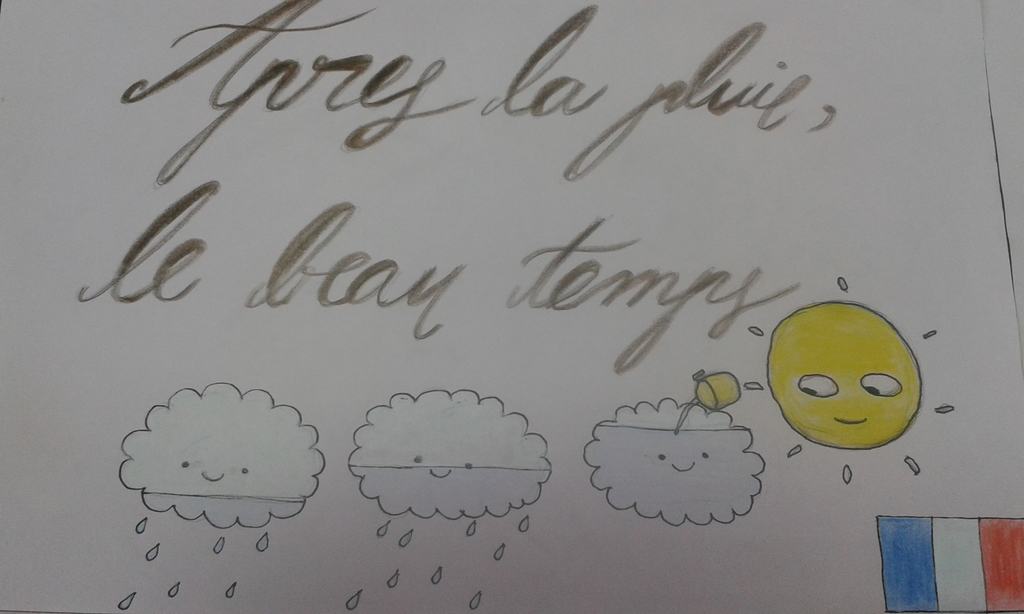 Apres la pluie,
le beau temps